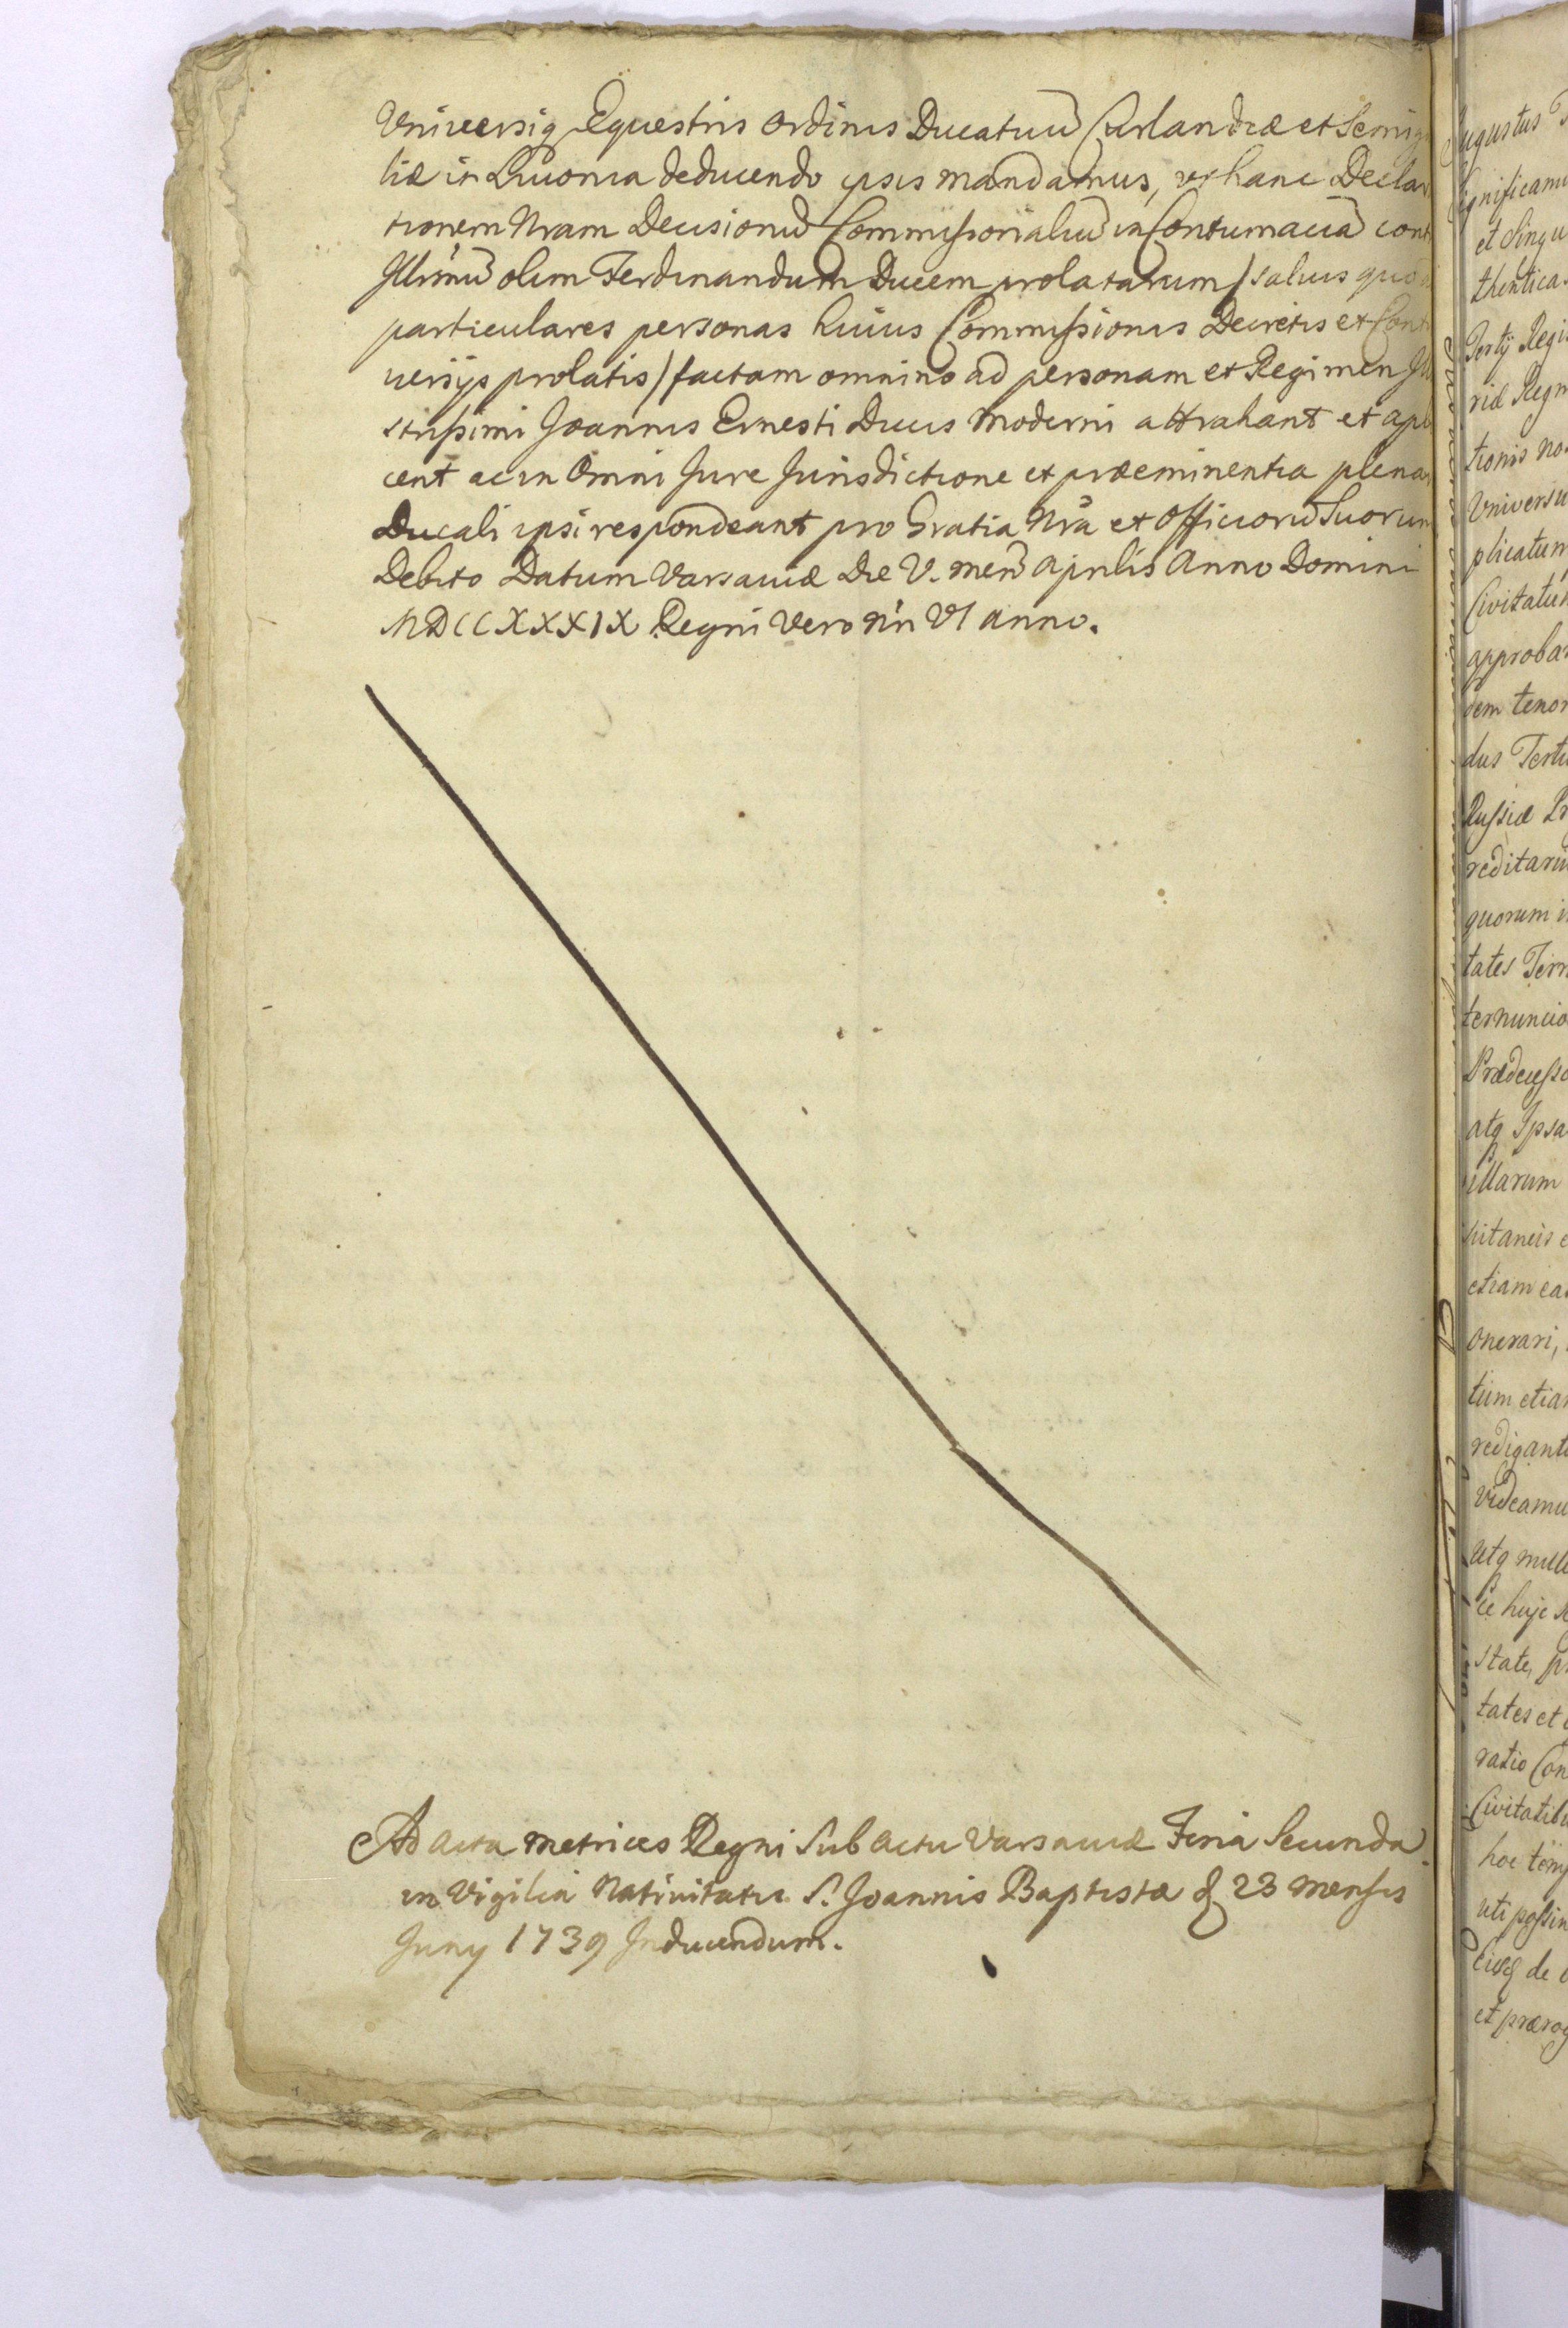 Universiq Equestris Ordinis Ducatuū Curlandiæ et Semig
liæ in Livonia deducendo ipsis mandamus, ut hanc Declar
tionem Nram Decisionū Commissorialiū in Contumaciā cont
Illrmū olim Ferdinandum Ducem prolatarum /salvis quo
particulares personas huius Commissionis Decretis et Cont
versijs prolatis/ factam omnino ad personam et Regimen Illu
strissimi Joannis Ernesti Ducis Moderni attrahant et apli
cent ac in Omni Jure Jurisdictione et præeminentia plena
Ducali ipsi respondeant pro Gratia Nrā et Officiorū Suorum
Debito Datum Varsaviæ Die V. menū Aprilis Anno Domini
MDCCXXXIX Regni Vero nri VI anno.
Ad Acta Metrices Regni Sub Actu Varsaviæ Feria Secunda
in Vigilia Nativitatis S. Joannis Baptistæ d 23 Mensis
Juny 1739 Inducendum.
ugustus
ignificamu
et Singu
thentica
Tertij Regi
riæ Regn
tionis No
Universu
plicatum
Civitatum
approba
dem tenor
dus Terti
Russiæ Pr
reditariu
quorum i
tates Terr
ternuncio
Prædecesso
atq Ipsa
illarum
etiam ea
onerari,
tum etia
redigant
videamu
utq null
state, pr
tates et
ratio Con
Civitatibu
hoc temp
uti possin
Eiusq de
et prærog